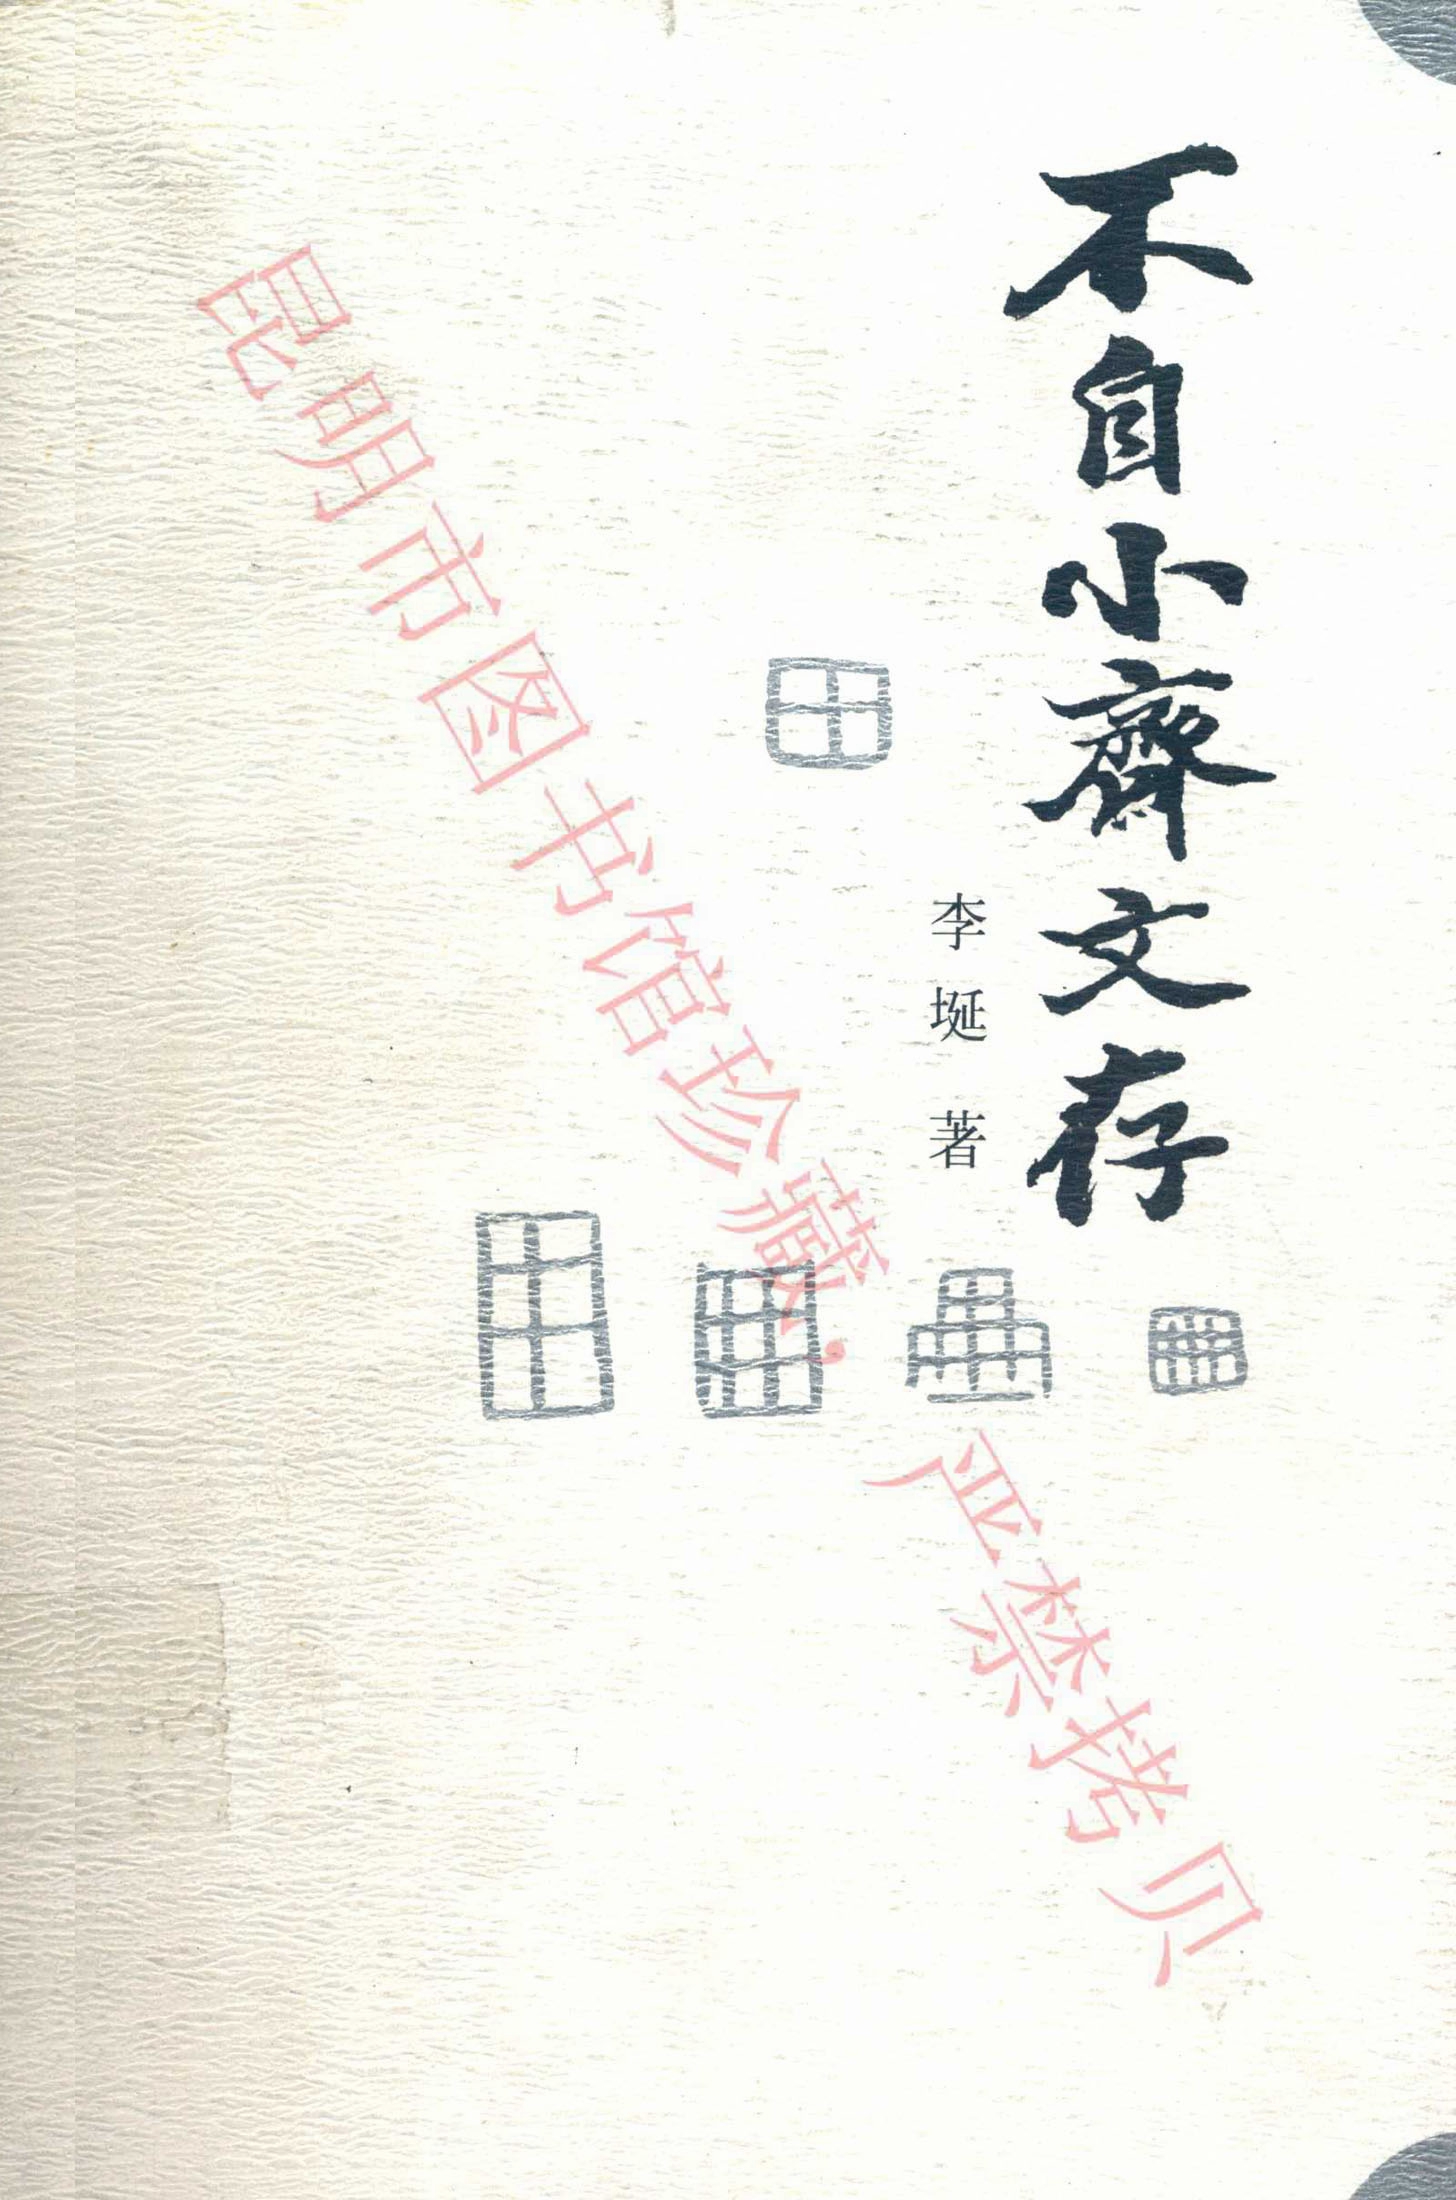 不自小齋文存
李埏 著
昆明市图书馆珍藏，严禁拷贝